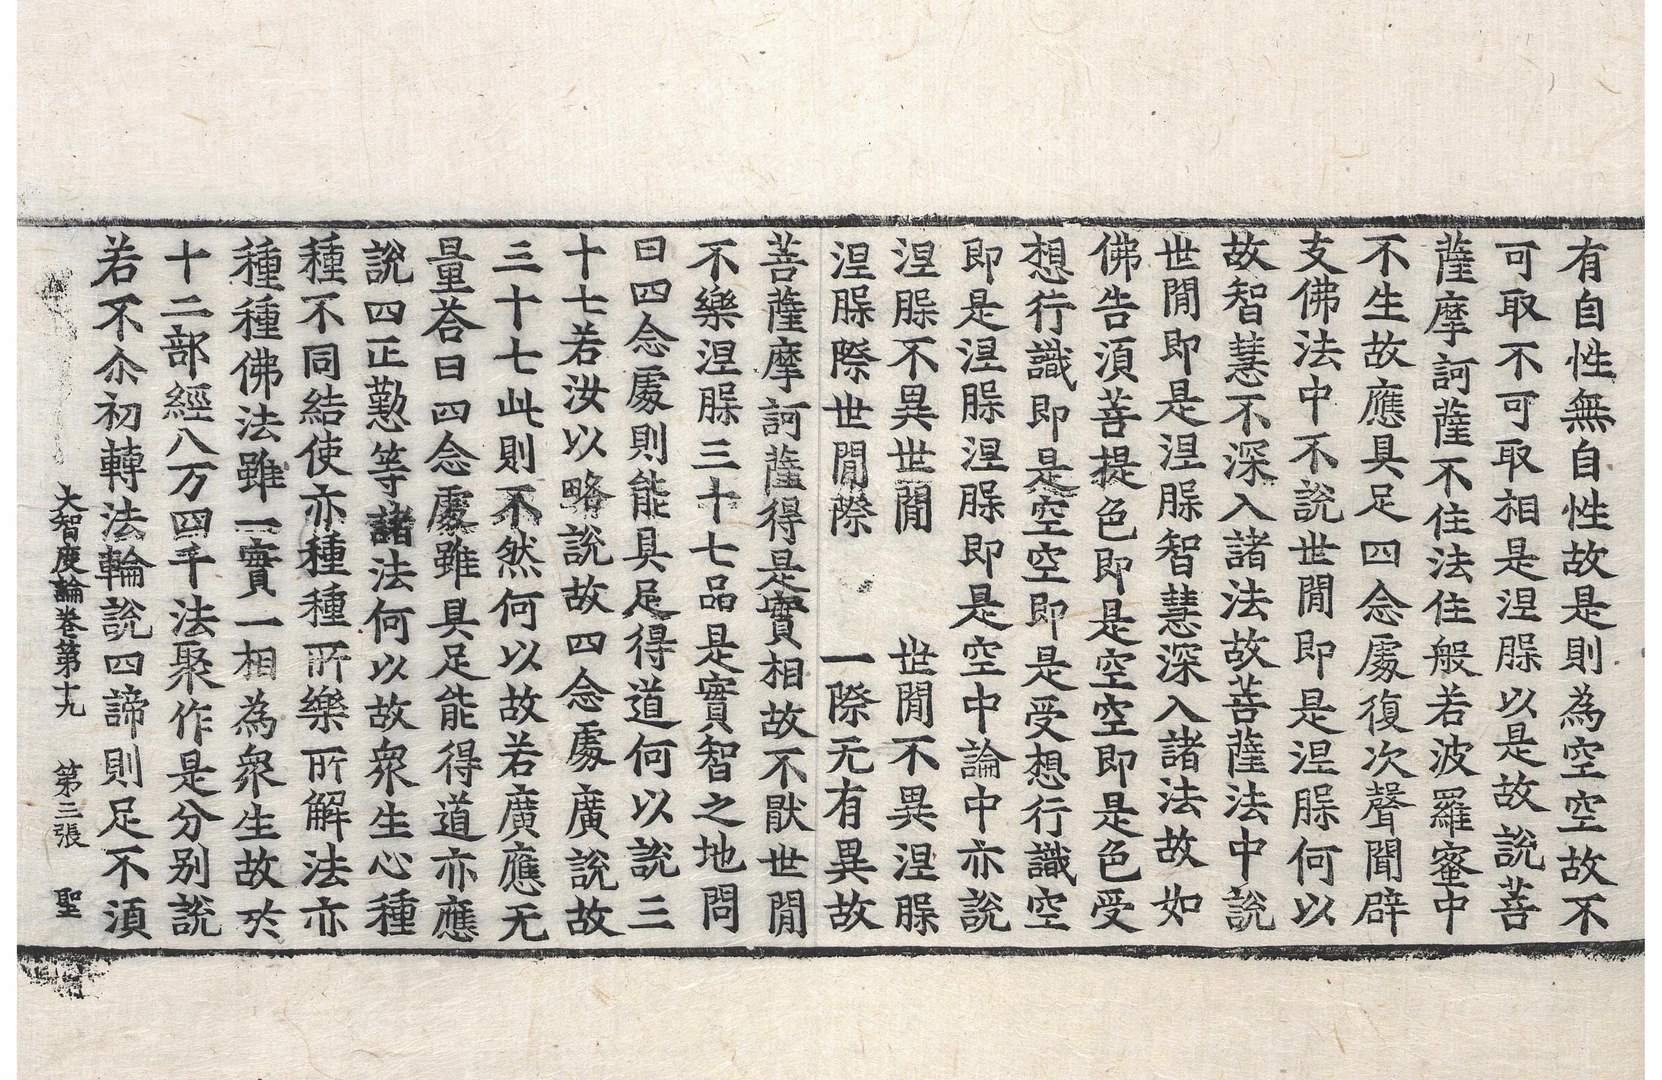 有自性無自性故是則為空空故不
可取不可取相是涅槃以是故說菩
薩摩訶薩不住法住般若波羅蜜中
不生故應具足四念處復次聲聞辟
支佛法中不說世閒即是涅槃何以
故智慧不深入諸法故菩薩法中說
世閒即是涅槃智慧深入諸法故如
佛告須菩提色即是空空即是色受
想行識即是空空即是受想行識空
即是涅槃涅槃即是空中論中亦說
涅槃不異世閒　世閒不異涅槃
涅槃際世閒際　一際无有異故
菩薩摩訶薩得是實相故不猒世閒
不樂涅槃三十七品是實智之地問
曰四念處則能具足得道何以說三
十七若汝以略說故四念處廣說故
三十七此則不然何以故若廣應无
量荅曰四念處雖具足能得道亦應
說四正懃等諸法何以故衆生心種
種不同結使亦種種所樂所解法亦
種種佛法雖一實一相為衆生故於
十二部經八万四千法聚作是分別說
若不尒初轉法輪說四諦則足不須
大智度論卷第十九　第三張　聖